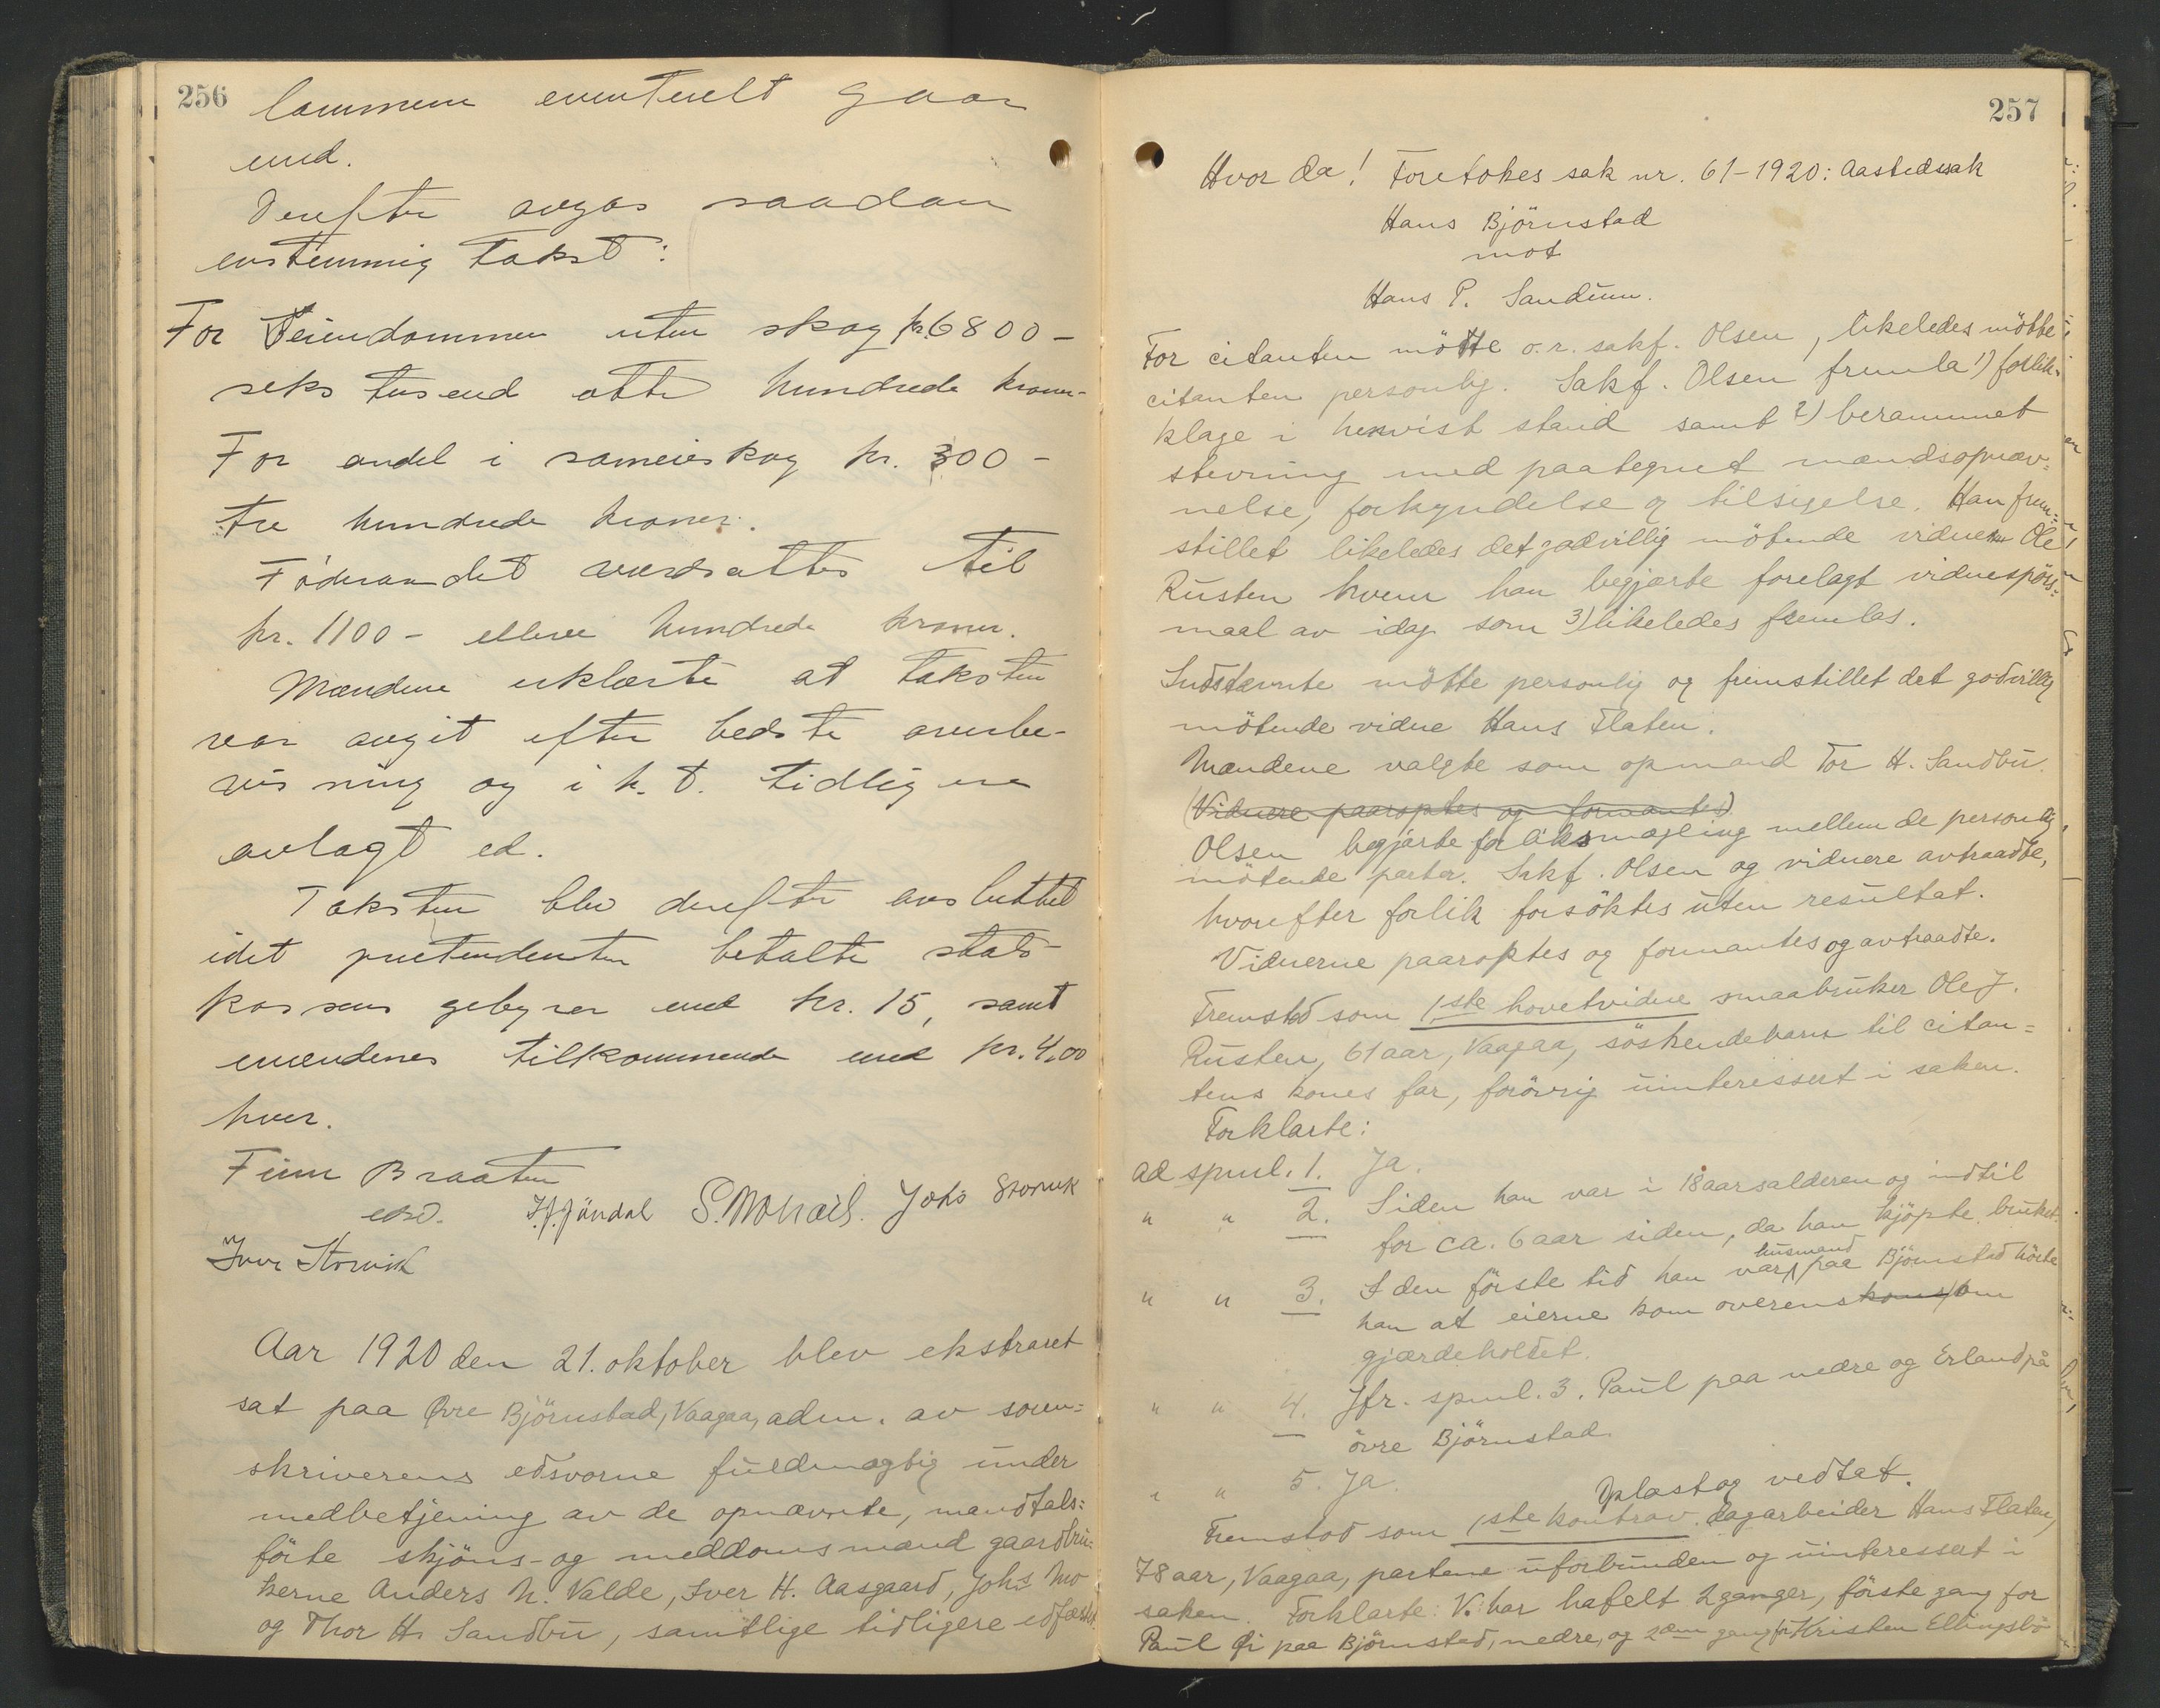 256
lammen eventuelt gaar
med.
Derefter avgas saadan
enstemmig takst:
For Eiendommen uten skog kr. 6800 -
seks tusend otte hundrede kroner -
For andel i sameieskog kr. 300 -
tre hundrede kroner.
Föderaadet værdsattes til
kr. 1100 - elleve hundrede kroner.
Mændene erklærte at taksten
var avgit efter bedste overbe-
visning og i h. t. tidligere
avlagt ed.
Taksten blev derefter avsluttet
idet pretendenten betalte stats-
kassens gebyrer med kr. 15, samt
mændenes tilkommende med kr. 4,00
hver.
Finn Braaten
edsv. J. J. Jöndal S. Moræl. Johs Storvik
Iver Storvik
Aar 1920 den 21. oktober blev ekstraret
sat paa Øvre Björnstad, Vaagaa, adm. av soren=
skriverens edsvorne fuldmægtig under
medbetjening av de opnævnte, mandtals=
förte skjöns- og meddomsmænd gaardbru=
kerne Anders N. Valde, Iver H. Aasgaard, Johs Mo
og Thor H. Sandbu, samtlige tidligere edfæstet.
257
Hvor da! Foretokes sak nr. 61-1920: Aastedssak
Hans Björnstad
mot
Hans P. Sandum.
For citanten mötte o.r. sakf. Olsen, likeledes mötte
citanten personlig. Sakf. Olsen fremla 1) forlik=
klage i henvist stand samt 2) berammet
stevning med paategnet mandsopnæv=
nelse, forkyndelse og tilsigelse. Han frem=
stillet likeledes det godvillig mötende vidne Ole
Rusten hvem han begjærte forelagt vidnespörs=
maal av idag som 3) likeledes fremlas.
Indstevnte mötte personlig og fremstillet det godvillig
mötende vidne Hans Flaten.
Mændene valgte som opmand Tor H. Sandbu.
(Vidnene paaroptes og formantes)
Olsen begjærte forliksmægling mellem de personlig
mötende parter. Sakf. Olsen og vidnene avtraadte,
hvorefter forlik forsöktes uten resultat.
Vidnerne paaroptes og formantes og avtraadte.
Fremstod som 1ste hovetvidne smaabruker Ole J.
Rusten, 61 aar, Vaagaa, söskendebarn til citan=
tens kones far, forövrig uinteressert i saken.
Forklarte:
ad spml. 1. Ja.
" " 2. Siden han var i 18 aarsalderen og indtil
for ca. 6 aar siden, da han kjöpte bruket.
" " 3. I den förste tid han var husmand paa Björnstad hörte
han at eierne kom overens kom om
gjærdeholdet.
" " 4. Jfr. spml. 3. Paul paa nedre og Erland på
övre Björnstad.
" " 5. Ja.
Oplæst og vedtat.
Fremstod som 1ste kontrav. dagarbeider Hans Flaten,
78 aar, Vaagaa, partene uforbunden og uinteressert i
saken. Forklarte: V. har hafelt 2 ganger, förste gang for
Paul Øi paa Björnstad, nedre, og 2den gang for Kristen Ellingsbö